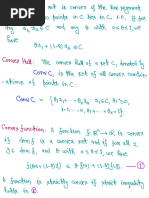 set is convex if the line segment
two points in C lies in C, i.e, if for
any x₁, x₂ ∈ C and any θ with 0≤θ≤1,
have
θx₁ + (1-θ)x₂ ∈ C
Convex Hull: The Convex Hull of a set C, denoted by
Conv C, is the set of all convex combin-
-ations of points in C:
Conv C = { θ₁x₁ + ... + θₖxₖ | xᵢ ∈ C, θᵢ ≥ 0,
θ₁ + ... + θₖ = 1 }
Convex function: A function f: Rⁿ → R is convex
if dom f is a convex set and if for all x, y ∈
dom f, and θ with 0 ≤ θ ≤ 1, we have
f(θx + (1-θ)y) ≤ θ f(x) + (1-θ) f(y) — ①
A function is strictly convex if strict inequality
holds in ①